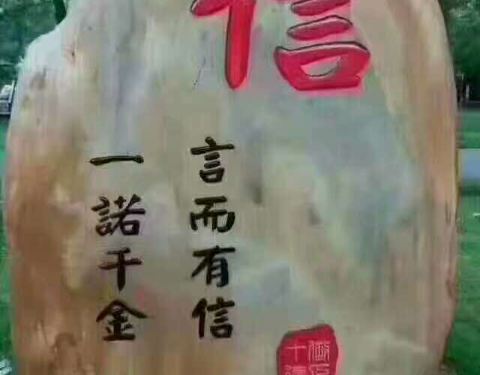 信
言而有信
一諾千金